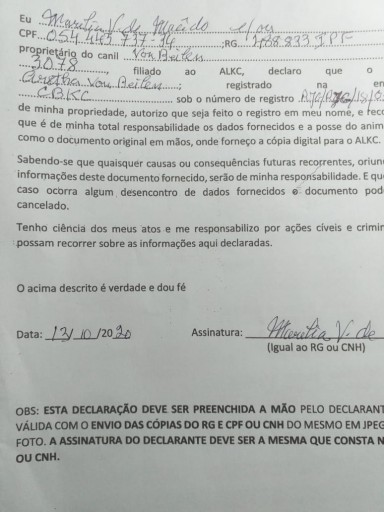 Eu Marilia V. de Macêdo e/ou
CPF 054 443 737 94 ;RG 1,88833 JPF
proprietário do canil Von Beilen
3078, filiado ao ALKC, declaro que o
Von Beilen ; registrado na en
C.B.K.C sob o número de registro
de minha propriedade, autorizo que seja feito o registro em meu nome, e reco
que é de minha total responsabilidade os dados fornecidos e a posse do anim
como o documento original em mãos, onde forneço a cópia digital para o ALKC.
Sabendo-se que quaisquer causas ou consequências futuras recorrentes, oriun
informações deste documento fornecido, serão de minha responsabilidade. E qu
caso ocorra algum desencontro de dados fornecidos e documento pod
cancelado.
Tenho ciência dos meus atos e me responsabilizo por ações cíveis e crimin
possam recorrer sobre as informações aqui declaradas.
O acima descrito é verdade e dou fé
Data: 13/10/2020 Assinatura: Marilia V. de
(Igual ao RG ou CNH)
OBS: ESTA DECLARAÇÃO DEVE SER PREENCHIDA A MÃO PELO DECLARANT
VÁLIDA COM O ENVIO DAS CÓPIAS DO RG E CPF OU CNH DO MESMO EM JPEG
FOTO. A ASSINATURA DO DECLARANTE DEVE SER A MESMA QUE CONSTA N
OU CNH.